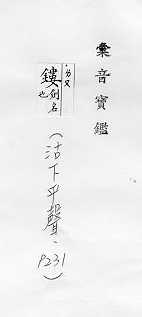 彙音寶鑑
˙ㄉㄡ
鏤 劍名也
(沽下平聲、P231)